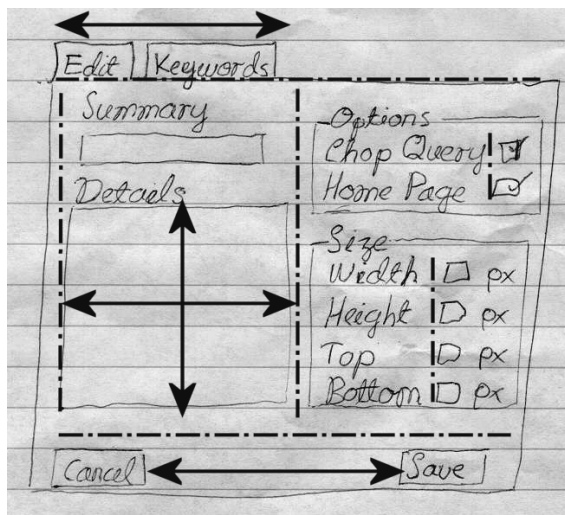 Edit Keywords
Summary
Details
Options
Chop Query
Home Page
Size
Width px
Height px
Top px
Bottom px
Cancel Save